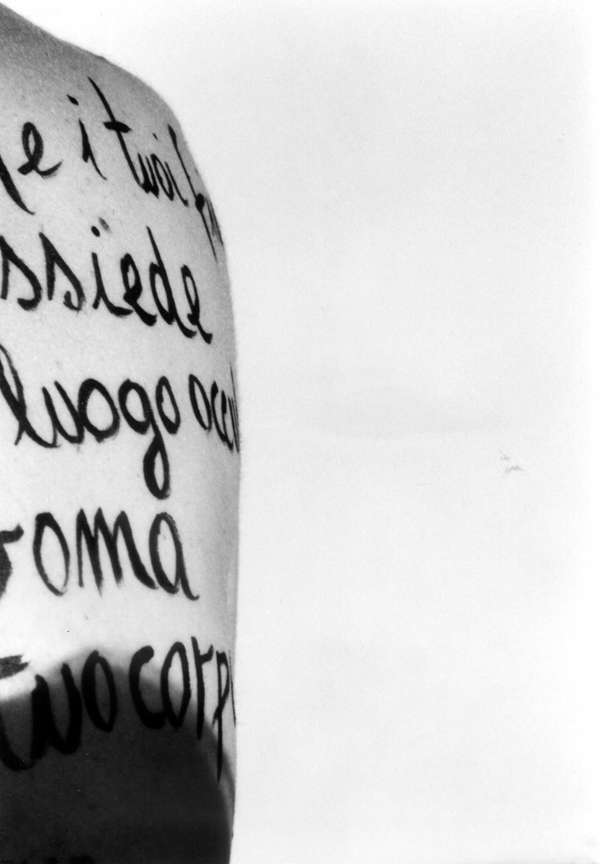 e i tuoi
ssiede
luogo occu
roma
tuo corp